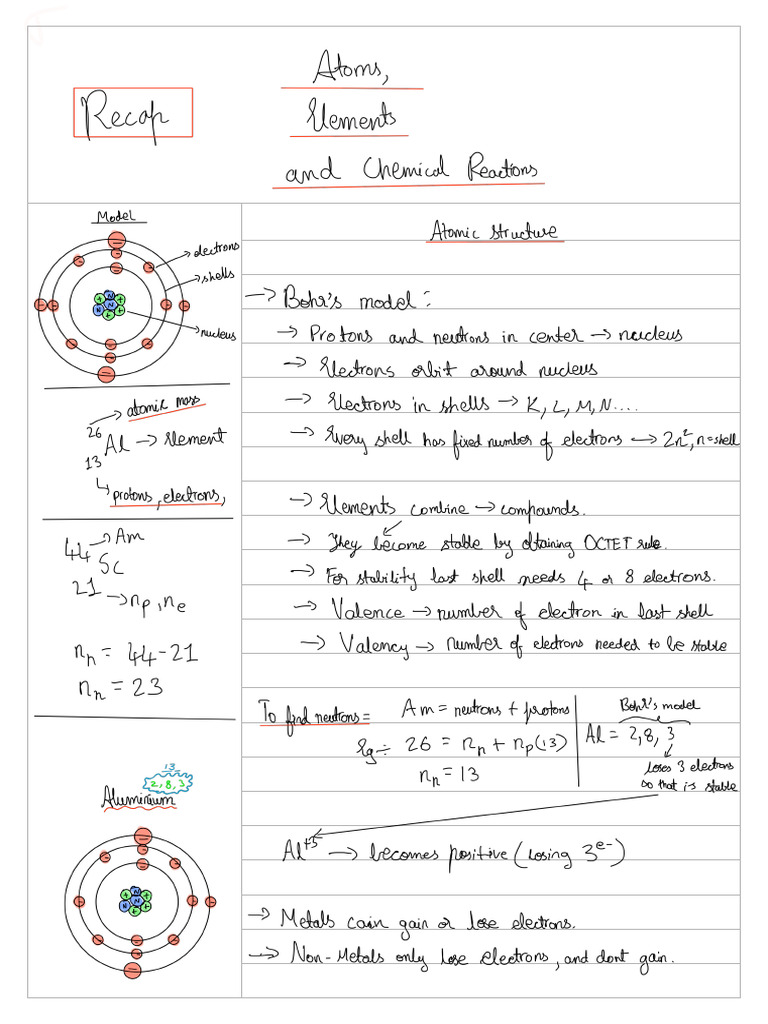 Recap
Atoms,
Elements
and Chemical Reactions
Model
electrons
shells
nucleus
→ atomic mass
26
Al → Element
13
↳ protons, electrons,
44 → Am
Sc
21 → np, ne
nn = 44-21
nn = 23
13
2, 8, 3
Aluminium
Atomic structure
→ Bohr's model :
→ Protons and neutrons in center → nucleus
→ Electrons orbit around nucleus
→ Electrons in shells → K, L, M, N....
→ Every shell has fixed number of electrons → 2n², n=shell
→ Elements combine → compounds.
→ They become stable by obtaining OCTET rule.
→ For stability last shell needs 4 or 8 electrons.
→ Valence → number of electron in last shell
→ Valency → number of electrons needed to be stable
To find neutrons =
Am = neutrons + protons
Eg ÷ 26 = nn + np(13)
nn = 13
Bohr's model
Al = 2, 8, 3
loses 3 electrons
so that is stable
Al⁺⁵ → becomes positive (losing 3e-)
→ Metals cain gain or lose electrons.
→ Non-Metals only lose electrons, and dont gain.